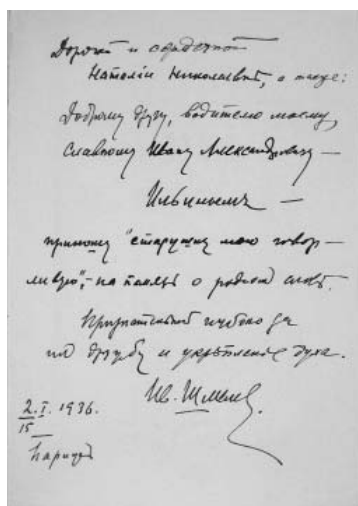 Дорогой и
Наталіи Николаевнѣ, а также:
Доброму другу, водителю моему,
Славному Ивану Александровичу —
Ильинымъ —
приношу "старушку мою говор-
ливую", - на память о родном словѣ.
Признательный глубоко за
дружбу и укрѣпленіе духа.
Ив. Шмелев.
2.I.1936.
15
Парижъ